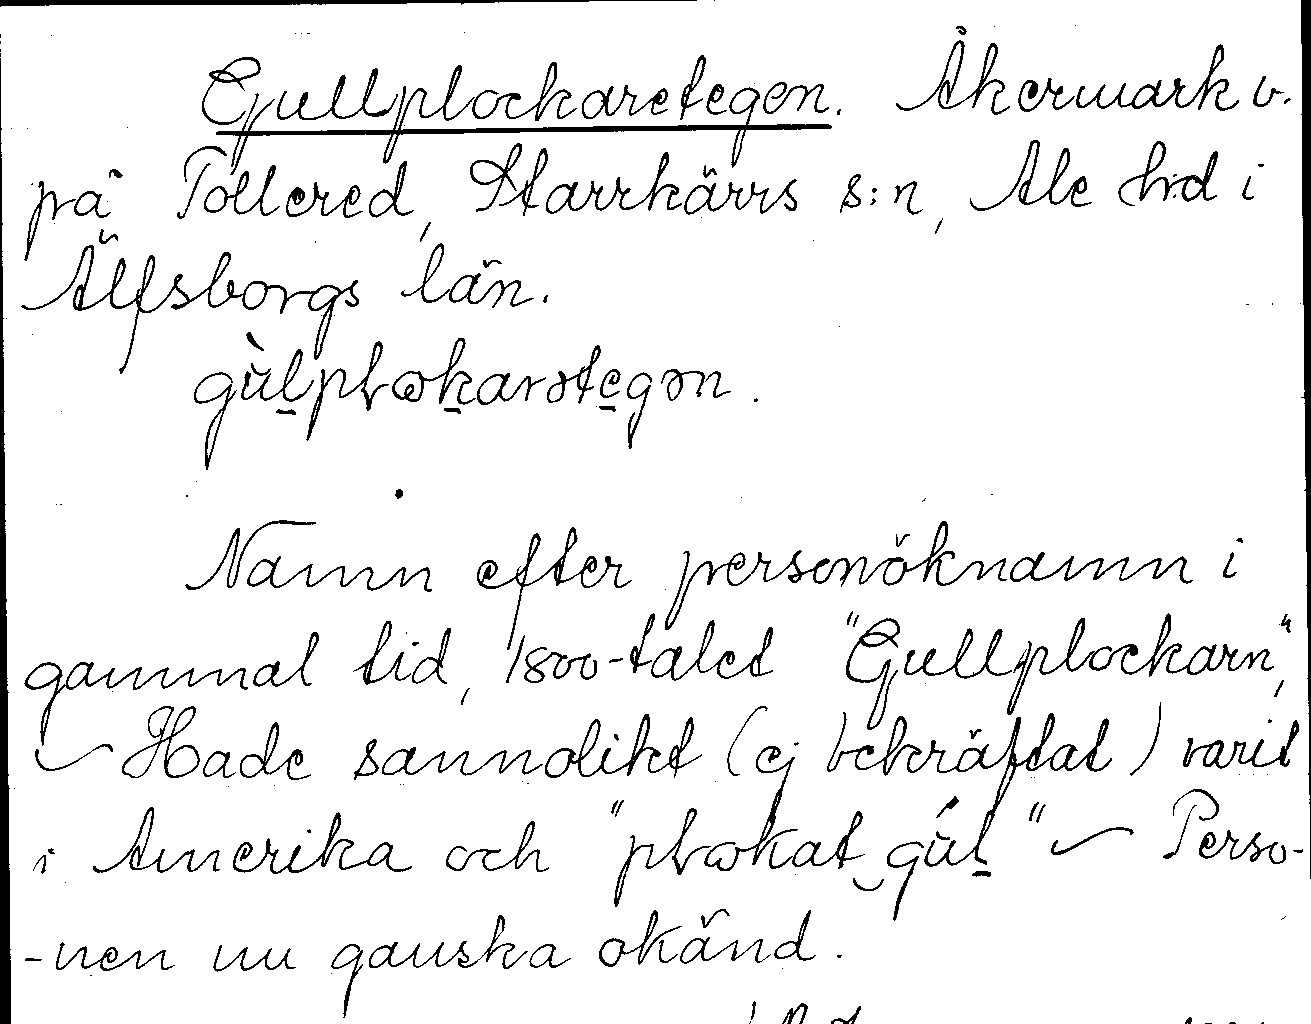 Gullplockaretegen. Åkermark v.
på Tollered, Starrkärrs s:n, Ale hd i
Älfsborgs län.
gùl̲plωk̲arəte̲gən.
Namn efter personöknamn i
gammal tid, 1800-talet "Gullplockarn",
– Hade sannolikt (ej bekräftat) varit
i Amerika och "plωkat‿gùl̲" – Perso-
-nen nu ganska okänd.